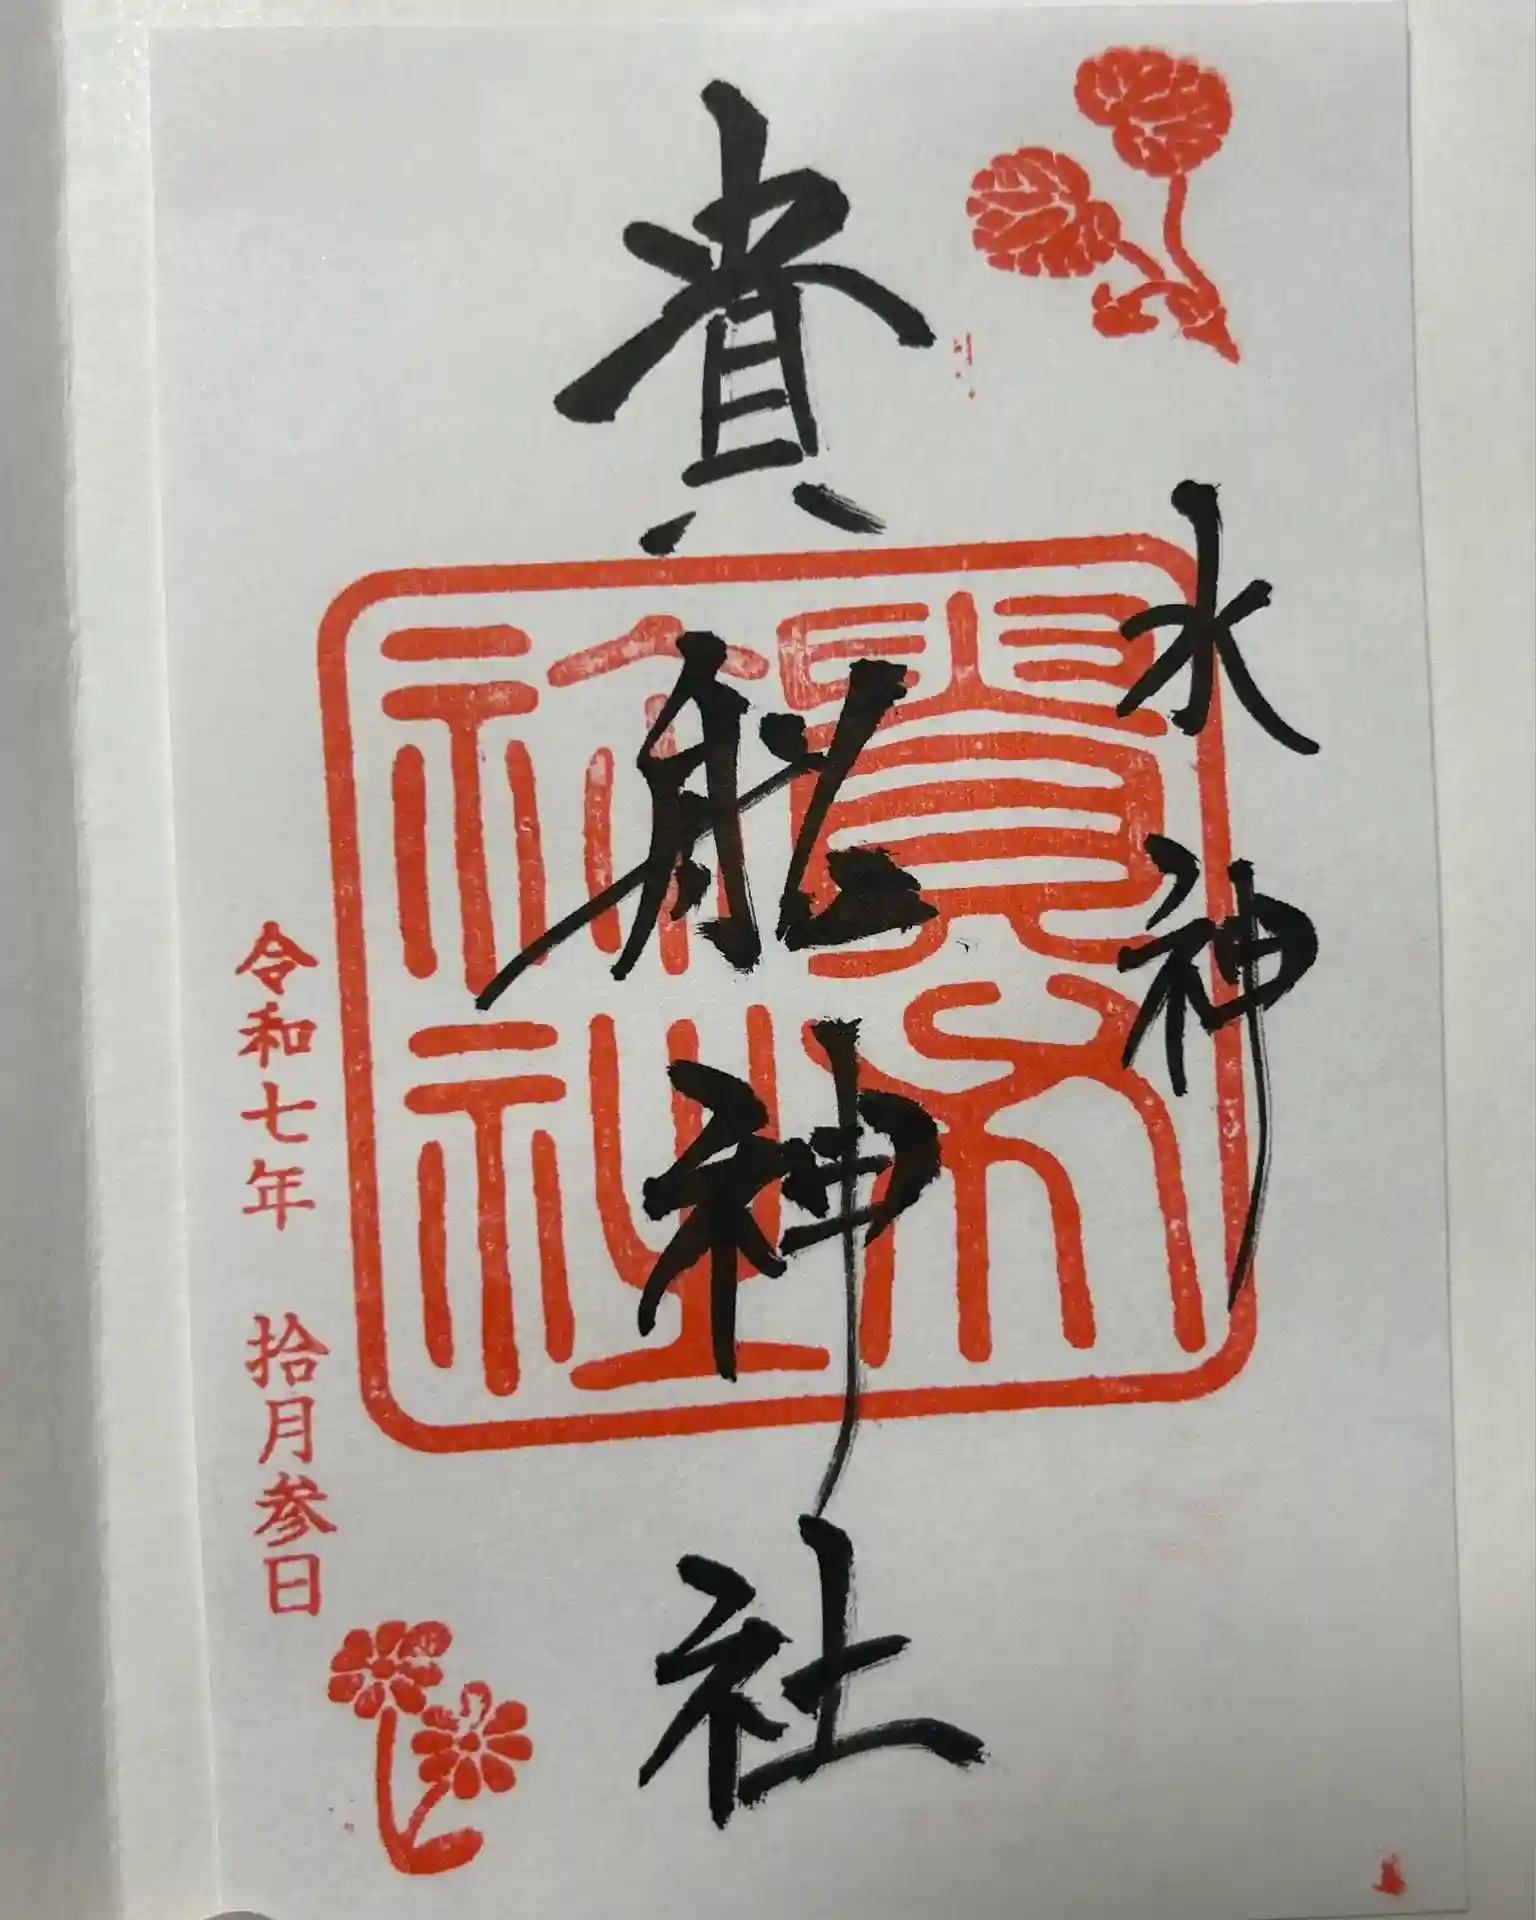 水神
貴船神社
貴船神社
令和七年 拾月参日